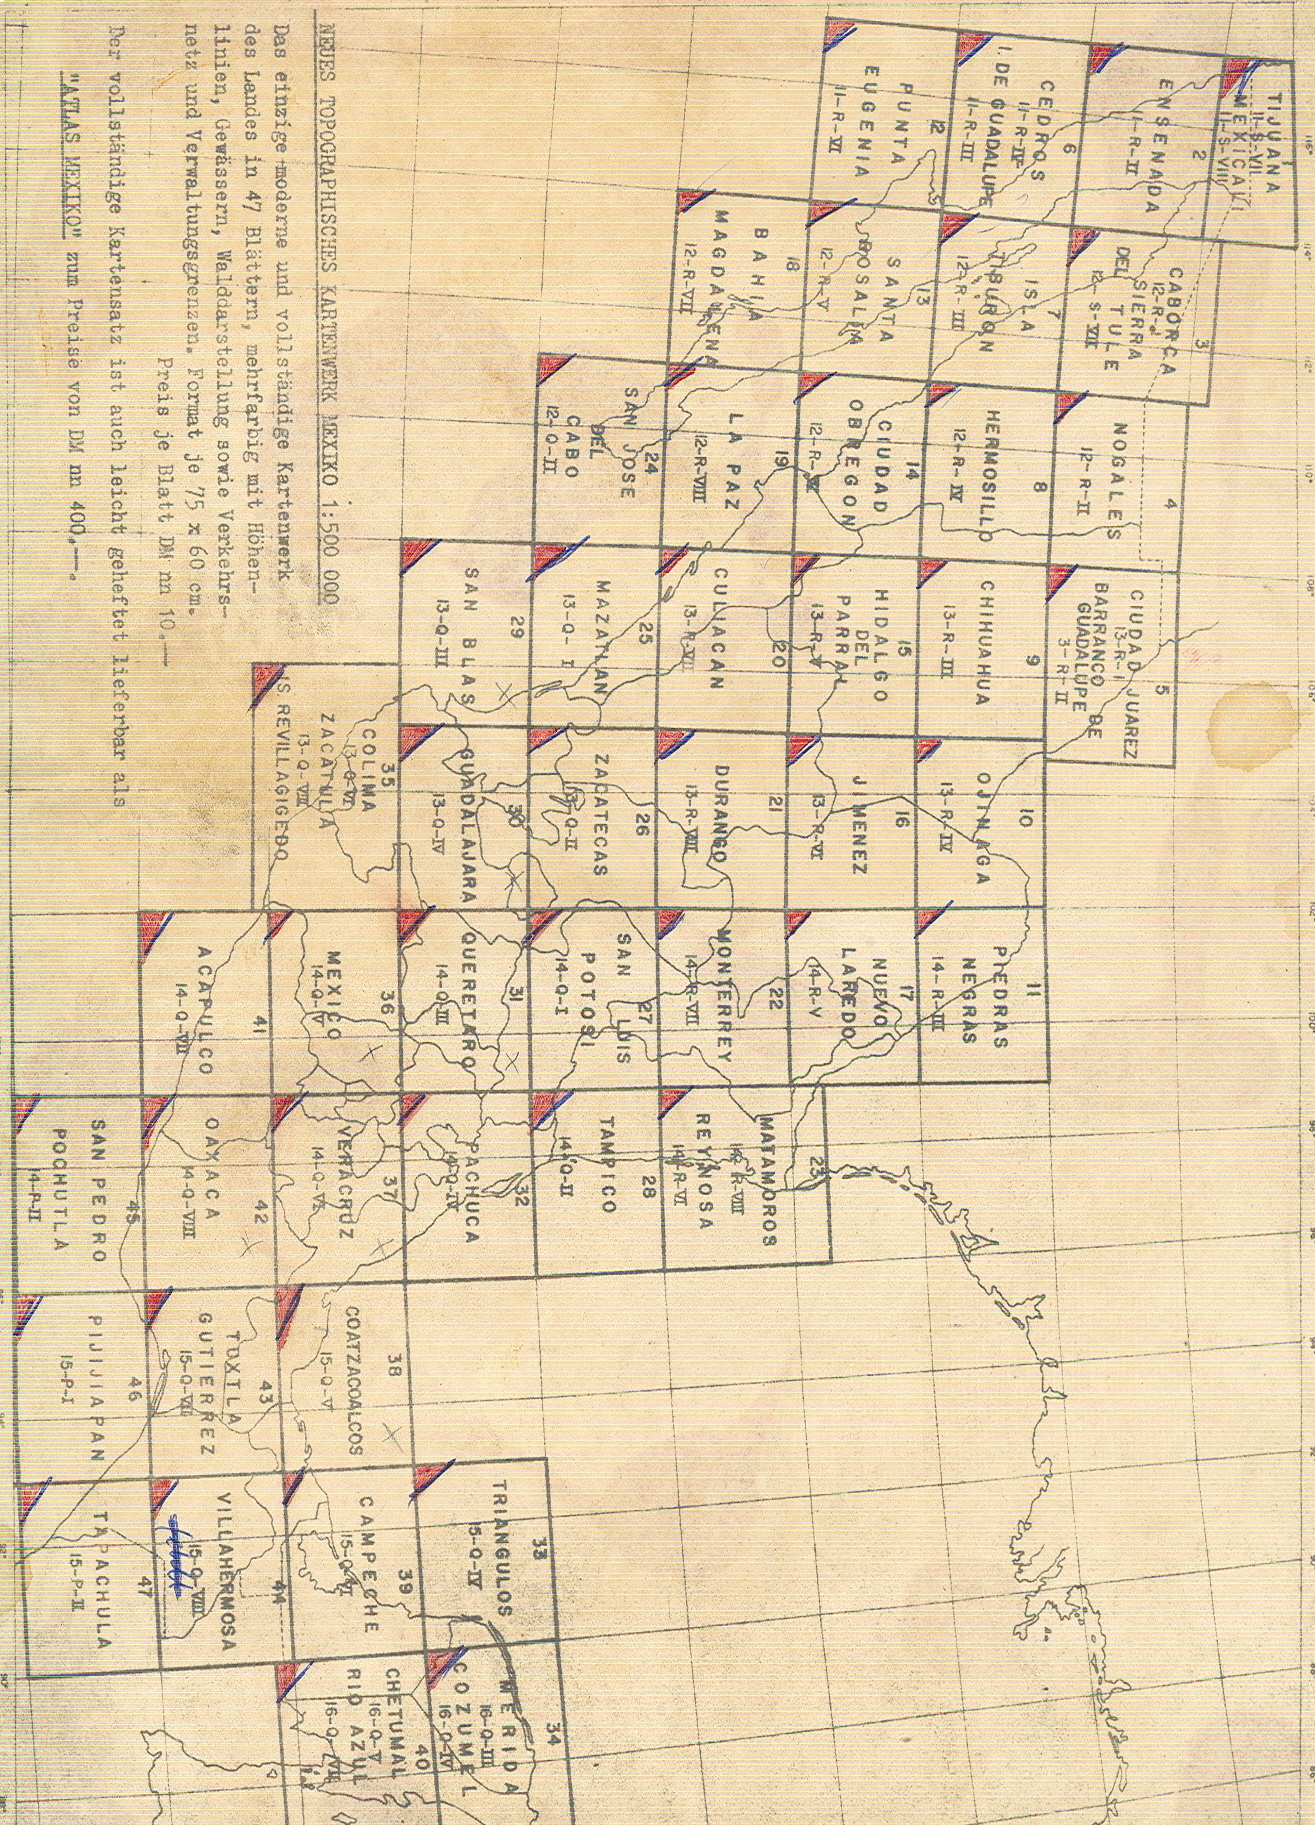 NEUES TOPOGRAPHISCHES KARTENWERK MEXIKO 1:500 000
Das einzige moderne und vollständige Kartenwerk
des Landes in 47 Blättern, mehrfarbig mit Höhen-
linien, Gewässern, Walddarstellung sowie Verkehrs-
netz und Verwaltungsgrenzen. Format je 75 x 60 cm.
Preis je Blatt DM nn 10.—
Der vollständige Kartensatz ist auch leicht geheftet lieferbar als
"ATLAS MEXIKO" zum Preise von DM nn 400,—.
1
TIJUANA
11-S-VII
MEXICALI
11-S-VIII
2
ENSENADA
11-R-II
3
CABORCA
12-R-I
SIERRA
DEL TULE
12-S-VII
4
NOGALES
12-R-II
5
CIUDAD JUAREZ
13-R-I
BARRANCO DE
GUADALUPE
3-R-II
6
CEDROS
11-R-IV
I. DE GUADALUPE
11-R-III
7
ISLA
TIBURON
12-R-III
8
HERMOSILLO
12-R-IV
9
CHIHUAHUA
13-R-III
10
OJINAGA
13-R-IV
11
PIEDRAS
NEGRAS
14-R-III
12
PUNTA
EUGENIA
11-R-VI
13
SANTA
ROSALIA
12-R-V
14
CIUDAD
OBREGON
12-R-VI
15
HIDALGO
DEL
PARRAL
13-R-V
16
JIMENEZ
13-R-VI
17
NUEVO
LAREDO
14-R-V
18
BAHIA
MAGDALENA
12-R-VII
19
LA PAZ
12-R-VIII
20
CULIACAN
13-R-VII
21
DURANGO
13-R-VIII
22
MONTERREY
14-R-VII
23
MATAMOROS
14-R-VIII
REYNOSA
14-R-VI
24
SAN JOSE
DEL
CABO
12-Q-II
25
MAZATLAN
13-Q-I
26
ZACATECAS
13-Q-II
27
SAN LUIS
POTOSI
14-Q-I
28
TAMPICO
14-Q-II
29
SAN BLAS
13-Q-III
30
GUADALAJARA
13-Q-IV
31
QUERETARO
14-Q-III
32
PACHUCA
14-Q-IV
33
TRIANGULOS
15-Q-IV
34
MERIDA
16-Q-III
COZUMEL
16-Q-IV
35
COLIMA
13-Q-VI
ZACATULA
13-Q-VIII
IS REVILLAGIGEDO
36
MEXICO
14-Q-V
37
VERACRUZ
14-Q-VI
38
COATZACOALCOS
15-Q-V
39
CAMPECHE
15-Q-VI
40
CHETUMAL
16-Q-V
RIO AZUL
16-Q-VII
41
ACAPULCO
14-Q-VII
42
OAXACA
14-Q-VIII
43
TUXTLA
GUTIERREZ
15-Q-VII
44
VILLAHERMOSA
15-Q-VIII
45
SAN PEDRO
POCHUTLA
14-P-II
46
PIJIJIAPAN
15-P-I
47
TAPACHULA
15-P-II